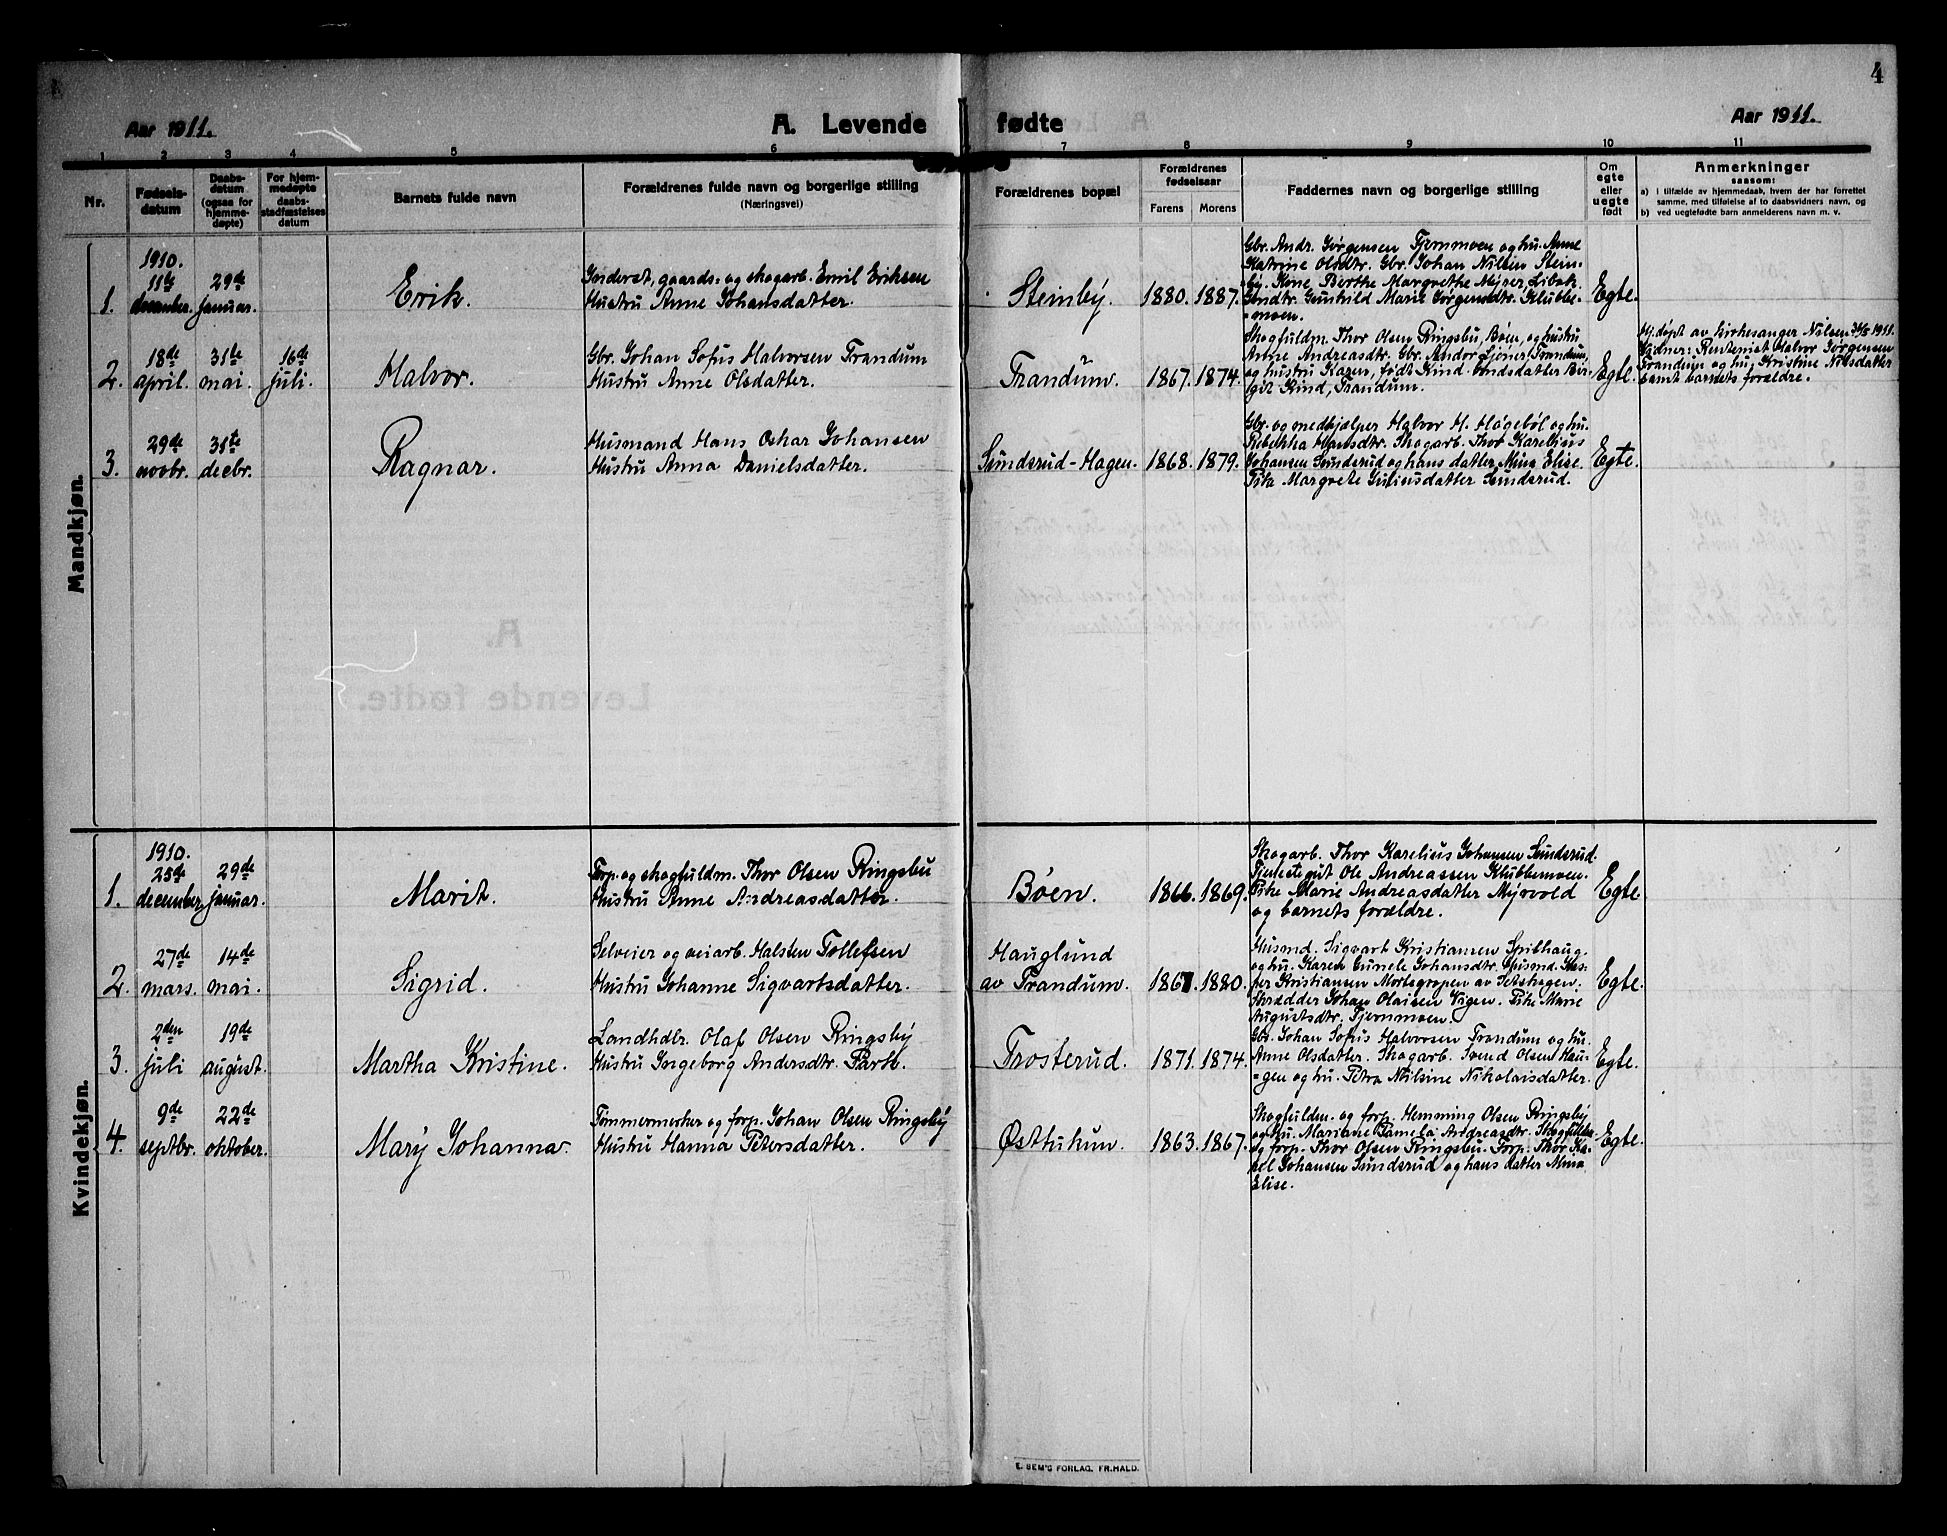 4
Aar 1911.
A. Levende fødte
Aar 1911.
1 2 3 4 5 6 7 8 9 10 11
Nr.
Fødsels-
datum
Daabs-
datum
(ogsaa for
hjemme-
døpte)
For hjem-
medøpte
daabs-
stadfæstelses
datum
Barnets fulde navn
Forældrenes fulde navn og borgerlige stilling
(Næringsvei)
Forældrenes bopæl
Forældrenes
fødselsaar
Farens Morens
Faddernes navn og borgerlige stilling
Om
egte
eller
uegte
født
Anmerkninger
saasom:
a) i tilfælde av hjemmedaab, hvem der har forrettet
samme, med tilføielse af to daabsvidners navn, og
b) ved uegtefødte barn anmelderens navn m. v.
Mandkjøn.
1.
1910.
11te
december.
29de
januar.
Erik.
Inderst, gaards- og skogarb. Emil Eriksen
Hustru Anne Johansdatter.
Steinby.
1880. 1887.
Gbr. Andr. Jørgensen Tjernmoen og hu. Anne
Katrine Olsdtr. Gbr. Johan Nilsen Stein-
by. Kone Berthe Margrethe Myrer, Libak.
Gndtr. Gunhild Marie Jørgensdtr. Klubbe-
moen.
Egte.
2.
18de
april.
31te
mai.
16de
juli.
Halvor.
Gbr. Johan Sofus Halvorsen Trandum
Hustru Anne Olsdatter.
Trandum.
1867. 1874.
Skogfuldm. Thor Olsen Ringsbu, Bøen, og hustru
Anne Andreasdtr. Gbr. Andor Ljøner, Trandum,
og hustru Karen, født Kind. Bir-
git Kind, Trandum.
Egte.
Hj.døpt av kirkesanger Nilsen 31/5 1911.
Vidner: Rentenist Halvor Jørgensen
Trandum og hu. Kristine Nilsdatter
samt barnets forældre.
3.
29de
novbr.
31te
decbr.
Ragnar.
Husmand Hans Oskar Johansen
Hustru Anna Danielsdatter.
Sundsrud-Hagen.
1868. 1879.
Gbr. og medhjælper Halvor H. Høgebøl og hu.
Rebekka Hansdtr. Skogarb. Thor Karelius
Johansen Sundsrud og hans datter Mina Elise.
Pike Margrete Juliusdatter Sundsrud.
Egte.
Kvindekjøn.
1.
1910.
25de
december
29de
januar.
Marit.
Forp. og skogfuldm. Thor Olsen Ringsbu
Hustru Anne Andreasdatter.
Bøen.
1866. 1869.
Skogarb. Thor Karelius Johansen Sundsrud.
Tjenestegut Ole Andreassen Klubbemoen.
Pike Marie Andreasdatter Myrvold
og barnets forældre.
Egte
2.
27de
mars.
14de
mai.
Sigrid.
Selveier og veiarb. Halsten Tollefsen
Hustru Johanne Sigvartsdatter.
Hauglund
av Trandum.
1867. 1880.
Husmd. Sigvart Kristiansen Spithaug
og hu. Karen Gunele Johansdtr. Husmd. Kas-
per Kristiansen Mortsgropen av Tetshagen.
Skrædder Johan Olaisen Vigen. Pike Marie
Augustsdtr. Tjernmoen.
Egte.
3.
2den
juli
19de
august.
Martha Kristine.
Landhdlr. Olaf Olsen Ringsby
Hustru Ingeborg Andersdtr. Partb.
Trosterud.
1871. 1874.
Gbr. Johan Sofus Halvorsen Trandum og hu.
Anne Olsdatter. Skogarb. Svend Olsen Hau-
gen og hu. Petra Nilsine Nikolaisdatter.
Egte.
4.
9de
septbr.
22de
oktober.
Mary Johanna.
Tømmermerker og forp. Johan Olsen Ringsby
Hustru Hanna Petersdatter.
Østhuhun.
1863. 1867.
Skogfuldm. og forp. Hemming Olsen Ringsby
og hu. Mariane Pamela Andreasdtr. Skogfuldm.
og forp. Thor Olsen Ringsbu. Forp. Thor Ka-
rel Johansen Sundsrud og hans datter Mina
Elise.
Egte.
E. SEM'S FORLAG, FR.HALD.